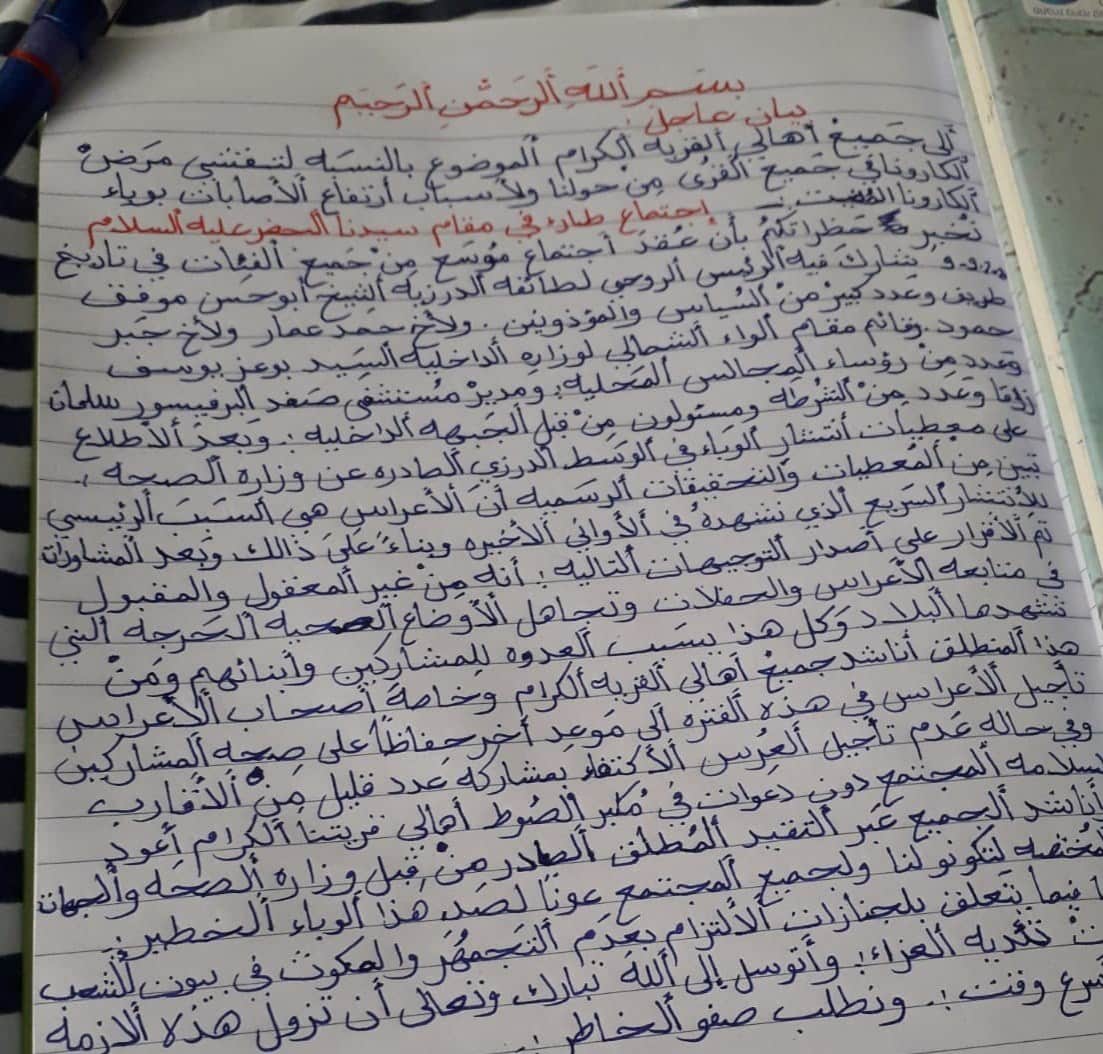 بسم الله الرحمن الرحيم
بيان عاجل:
إلى جميع أهالي القريه الكرام الموضوع بالنسبه لتفشي مرض
الكارونا في جميع القرى من حولنا ولأسباب أرتفاع الأصابات بوباء
الكارونا
إجتماع طارئ في مقام سيدنا الخضر عليه السلام
نخبر حظراتكم بأن عقد أجتماع مؤسع من جميع الفئات في تاريخ
9.9.20 شارك فيه الرئيس الروحي لطائفه الدرزيه الشيخ أبو حسن موفق
طريف وعدد كبير من السياس والمؤذوينن. ولأخ حمد عمار ولأخ جبر
حمود. وقائم مقام ألواء الشمالي لوزاره الداخليه السيد بوعز يوسف
وعدد من رؤساء المجالس المحليه؛ ومدير مستشفى صفد البرفيسور سلمان
زرقا وعدد من الشرطه ومسئولون من قبل الجبهه الداخليه: وبعد الأطلاع
على معطيات أنتشار الوباء في الوسط الدرزي الصادره عن وزاره الصحه:
تبين من المعطيات والتحقيقات الرسميه أن الأعراس هي السبب الرئيسي
للأنتشار السريع الذي نشهده في الأواني الأخيره وبناءً على ذالك وبعد المشاورات
تم الأقرار على أصدار التوجيهات التاليه: أنه من غير المعقول والمقبول
في متابعه الأعراس والحفلات وتجاهل الأوضاع الصحيه الحرجه التي
تشهدها البلاد وكل هذا بسبب العدوه للمشاركين وأبنائهم ومن
هذا المنطلق أناشد جميع أهالي القريه الكرام وخاصةً أصحاب الأعراس
تأجيل الأعراس في هذه الفتره إلى موعد أخر حفاظاً على صحه المشاركين
وفي حاله عدم تأجيل العرس الأكتفاء بمشاركة عدد قليل من الأقارب
لسلامه المجتمع دون دعوات في مكبر الصوط أهالي قريتنا الكرام أعود
أناشد الجميع عبر التقيد المطلق الصادر من قبل وزاره الصحه والجهات
المختصه لتكونو لنا ولجميع المجتمع عونًا لصد هذا الوباء الخطير:
فيما تتعلق بلجنازات الألتزام بعدم التجمهر والمكوث في بيوت الشعب
تئديه العزاء؛ وأتوسل إلى الله تبارك وتعالى أن تزول هذه الازمه
وقت: ونطلب صفو الخاطر: